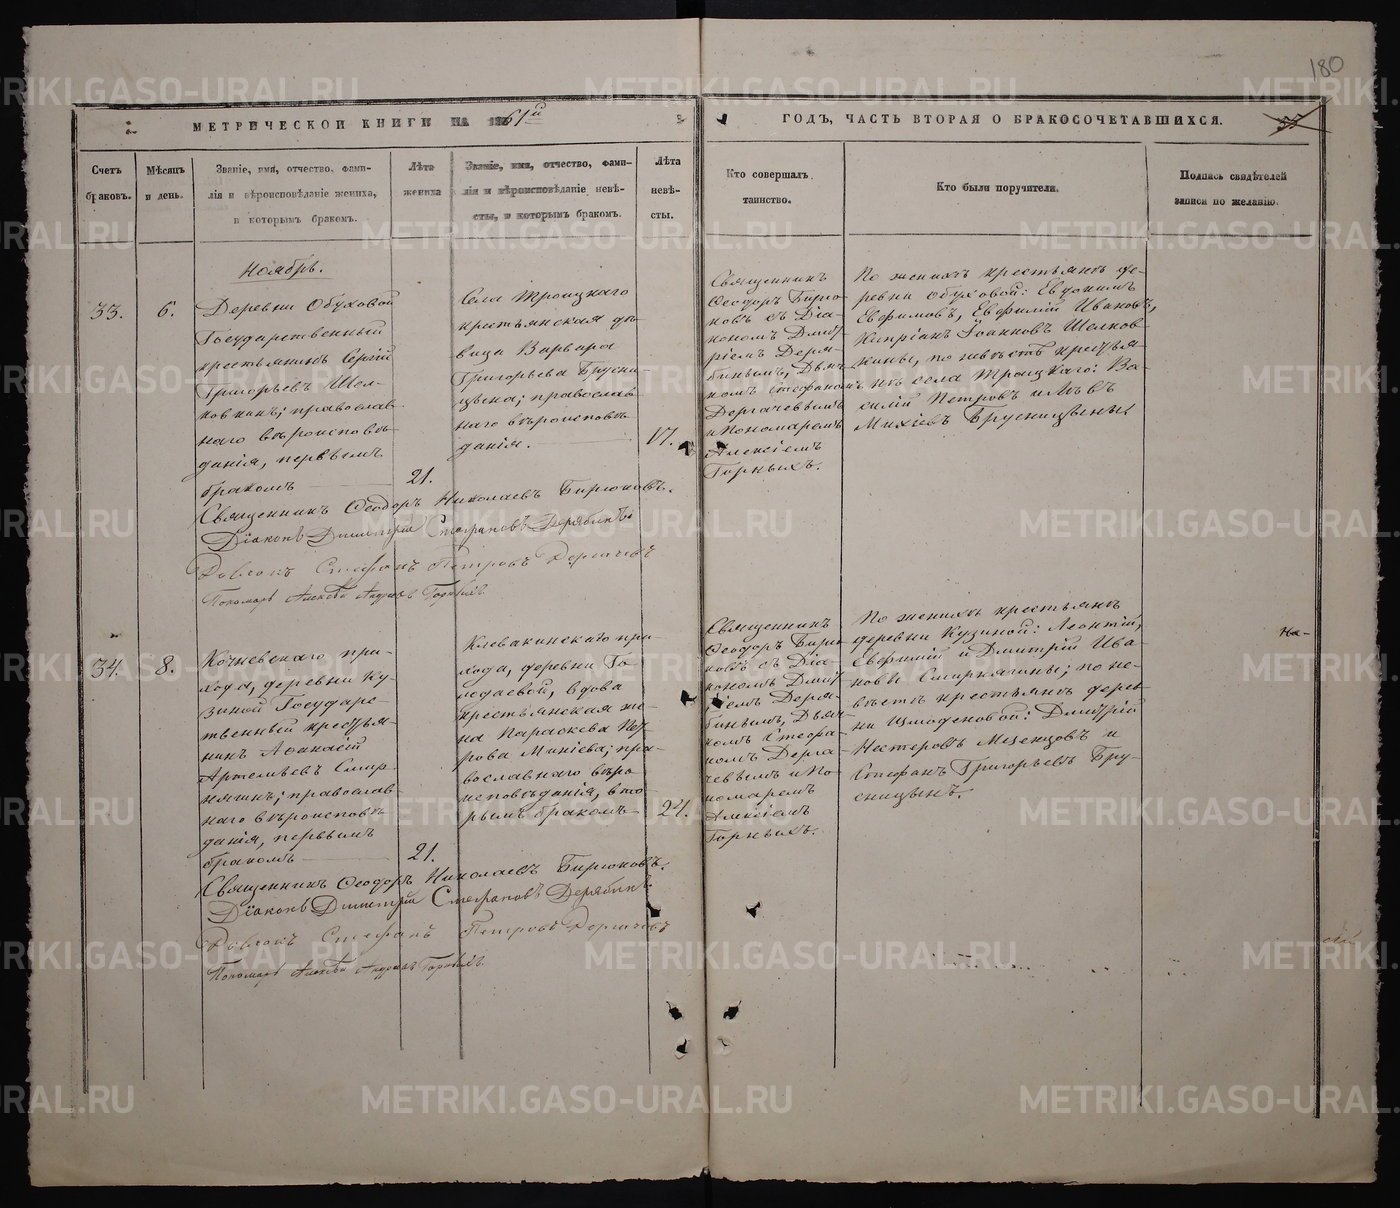 180
МЕТРИЧЕСКОЙ КНИГИ НА 1861й
ГОДЪ, ЧАСТЬ ВТОРАЯ О БРАКОСОЧЕТАВШИХСЯ.
Счетъ
браковъ.
Мѣсяцъ
и день.
Званіе, имя, отчество, фами-
лія и вѣроисповѣданіе жениха,
и которымъ бракомъ.
Лѣта
жениха
Званіе, имя, отчество, фами-
лія и вѣроисповѣданіе невѣ-
сты, и которымъ бракомъ.
Лѣта
невѣ-
сты.
Кто совершалъ
таинство.
Кто были поручители.
Подпись свидѣтелей
записи по желанію.
Ноябрь.
33.
6.
Деревни Обуховой
Государственный
крестьянинъ Сергій
Григорьевъ Шел-
ковкинъ; православ-
наго вѣроисповѣ-
данія, первымъ
бракомъ
21.
Села Троицкаго
крестьянская дѣ-
вица Варвара
Григорьева Брусни-
цына; православ-
наго вѣроисповѣ-
данія.
17.
Священникъ
Ѳеодоръ Бирю-
ковъ съ Діа-
кономъ Дмит-
ріемъ Деря-
бинымъ, Дьяч-
комъ Стефаномъ
Дергачевымъ
и Пономаремъ
Алексіемъ
Горныхъ.
По женихѣ крестьянѣ де-
ревни Обуховой: Евдокимъ
Евфимовъ, Евфимій Ивановъ,
Кипріанъ Іоанновъ Шелков-
кины, по невѣстѣ крестья-
не села Троицкаго: Ва-
силій Петровъ и Левъ
Михѣевъ Брусницыны
Священникъ Ѳеодоръ Николаевъ Бирюковъ.
Діаконъ Димитрій Стефановъ Дерябинъ
Дьячокъ Стефанъ Петровъ Дергачевъ
Пономарь Алексѣй Андреевъ Горныхъ
34.
8.
Кочневскаго при-
хода, деревни Ку-
зиной Государс-
твенный крестья-
нинъ Аѳанасій
Артемьевъ Смир-
нягинъ; православ-
наго вѣроисповѣ-
данія, первымъ
бракомъ
21.
Клевакинскаго при-
хода, деревни Го-
лодаевой, вдова
крестьянская же-
на Параскева Пет-
рова Минѣева; пра-
вославнаго вѣро-
исповѣданія, вто-
рымъ бракомъ
24.
Священникъ
Ѳеодоръ Бирю-
ковъ съ Діа-
кономъ Дмит-
ріемъ Деря-
бинымъ, Дьяч-
комъ Стефа-
номъ Дерга-
чевымъ и По-
номаремъ
Алексіемъ
Горныхъ.
По женихѣ крестьянѣ
деревни Кузиной: Леонтій,
Евфимій и Дмитрій Ива-
новы Смирнягины; по не-
вѣстѣ крестьянѣ дерев-
ни: Дмитрій
Нестеровъ Мезенцовъ и
Стефанъ Григорьевъ Бру-
сницынъ.
Священникъ Ѳеодоръ Николаевъ Бирюковъ.
Діаконъ Димитрій Стефановъ Дерябинъ
Дьячокъ Стефанъ Петровъ Дергачевъ
Пономарь Алексѣй Андреевъ Горныхъ.
METRIKI.GASO-URAL.RU